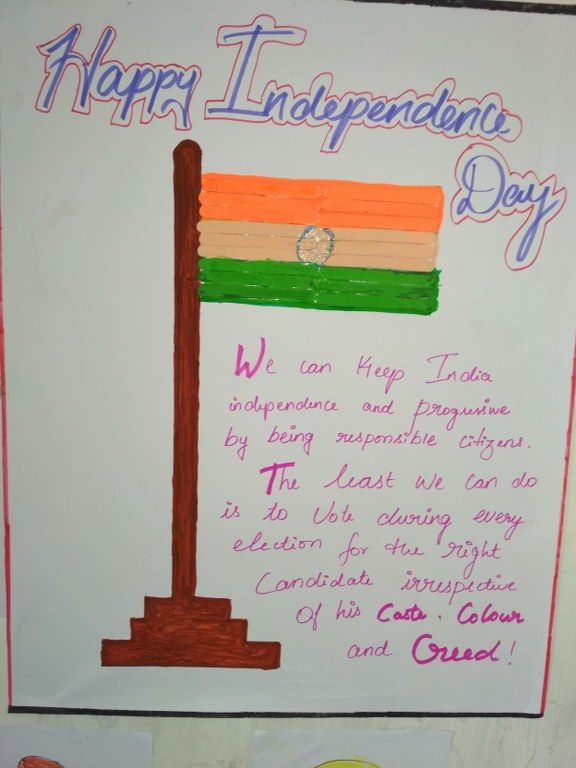 Happy Independence
Day
We can Keep India
independence and progressive
by being responsible citizens.
The least we can do
is to Vote during every
election for the right
Candidate irrespective
Of his Caste, Colour
and Creed!